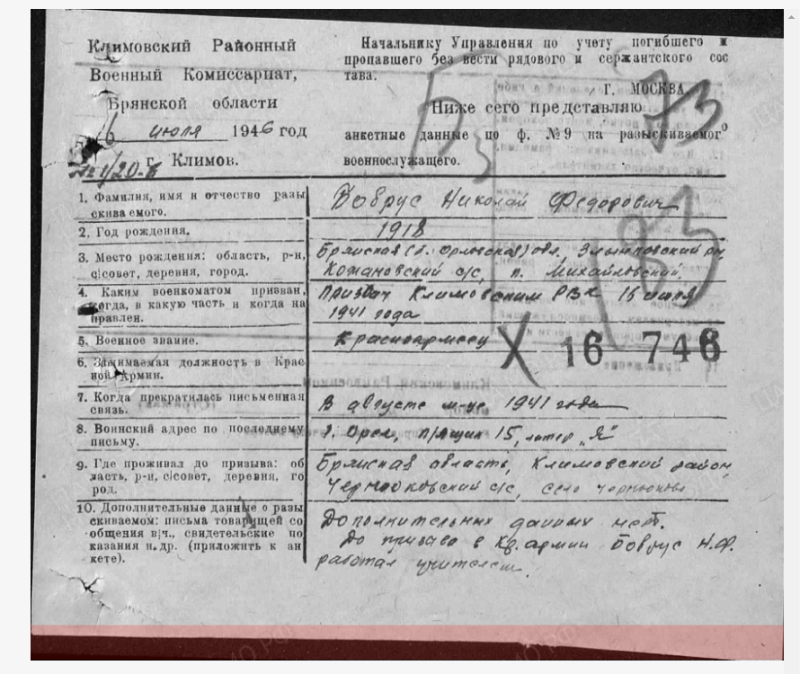 Климовский Районный
Военный Комиссариат,
Брянской области
6 июля 1946 год
г. Климов.
Начальнику Управления по учету погибшего и
пропавшего без вести рядового и сержантского сос
тава.
Г. МОСКВА
Ниже сего представляю
анкетные данные по ф. №9 на разыскиваемого
военнослужащего.
73
1. Фамилия, имя и отчество разы
скива емого.
Бобрус Николай Федорович
2. Год рождения.
1918
3. Место рождения: область, р-н,
с|совет, деревня, город.
Брянская (б. Орловская) обл. Злынковский рн
Кожановский с/с, п. Михайловский,
4. Каким военкоматом призван,
когда, в какую часть и когда на
правлен.
Призван Климовским РВК 15 июля
1941 года
5. Военное звание.
Красноармеец
16 746
6. Занимаемая должность в Крас
ной Армии.
7. Когда прекратилась письменная
связь.
В августе м-це 1941 года
8. Воинский адрес по последнему
письму.
г. Орел, п/ящик 15, литер „Я"
9. Где проживал до призыва: об
ласть, р-н, с|совет, деревня, го
род.
Брянская область, Климовский район,
с/с, село
10. Дополнительные данные о разы
скиваемом: письма товарищей со
общения в|ч., свидетельские по
казания и др. (приложить к ан
кете).
Дополнительных данных нет.
До призыва в Кр. армии Бобрус Н.Ф.
работал учителем.